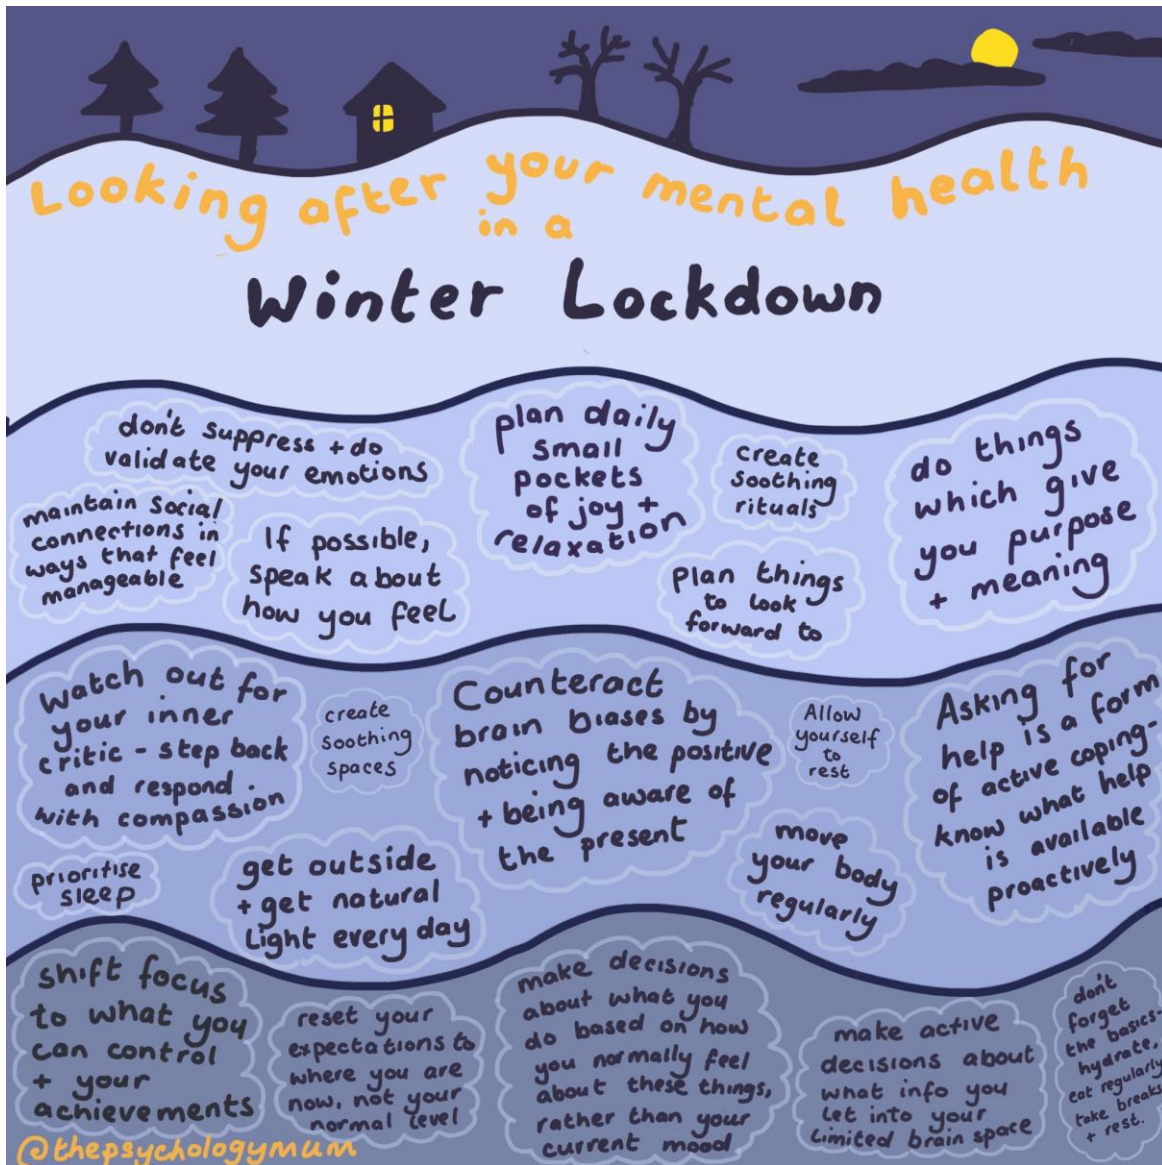 Looking after your mental health
in a
Winter Lockdown
don't suppress + do
validate your emotions
maintain social
connections in
ways that feel
manageable
If possible,
speak about
how you feel
plan daily
small
pockets
of joy +
relaxation
create
soothing
rituals
plan things
to look
forward to
do things
which give
you purpose
+ meaning
Watch out for
your inner
critic - step back
and respond
with compassion
create
soothing
spaces
Counteract
brain biases by
noticing the positive
+ being aware of
the present
Allow
yourself
to
rest
Asking for
help is a form
of active coping-
know what help
is available
proactively
prioritise
sleep
get outside
+ get natural
light every day
move
your body
regularly
shift focus
to what you
can control
+ your
achievements
reset your
expectations to
where you are
now, not your
normal level
make decisions
about what you
do based on how
you normally feel
about these things,
rather than your
current mood
make active
decisions about
what info you
let into your
limited brain space
don't
forget
the basics-
hydrate,
eat regularly
take breaks
+ rest.
@thepsychologymum